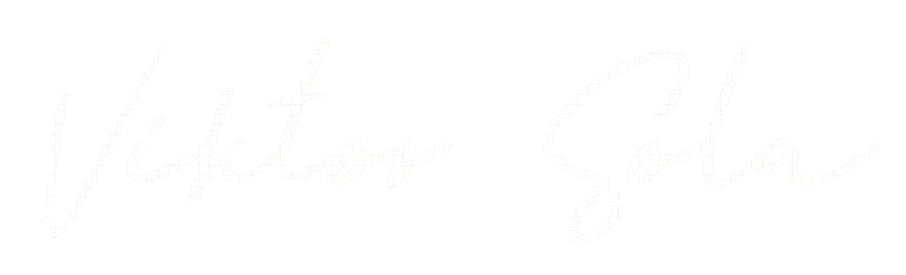 Viktor Sola